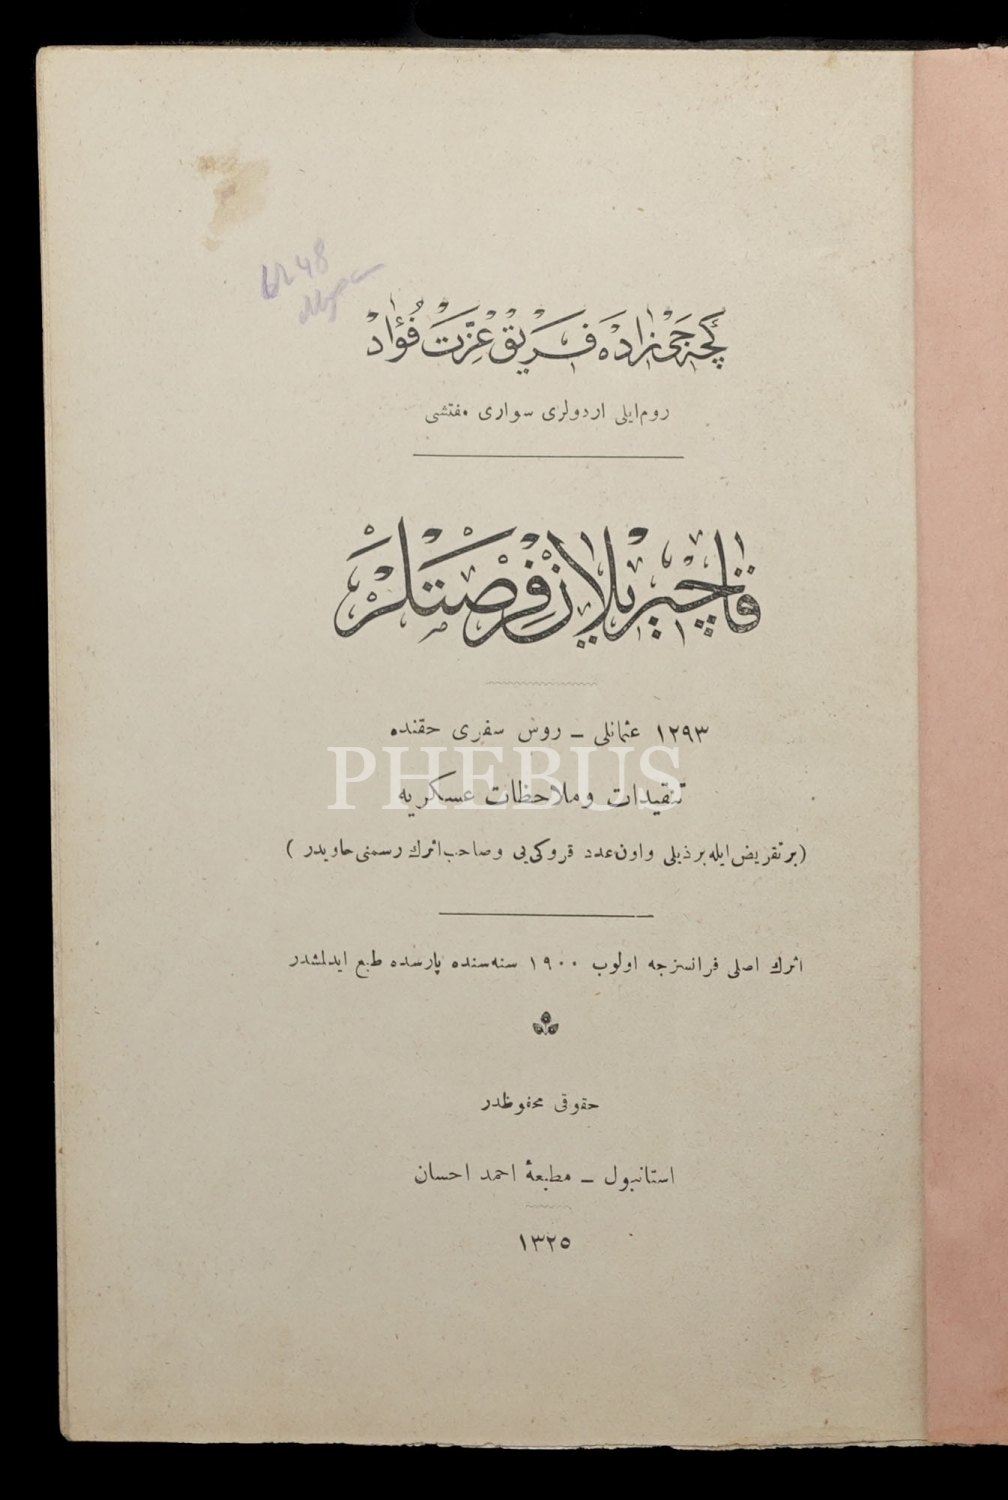 كچه جی زاده فريق عزت فؤاد
روم ايلی اردولری سواری مفتشی
قاچيريلان فرصتلر
١٢٩٣ عثمانلی – روس سفری حقنده
تنقيدات وملاحظات عسكريه
(بر تقريض ايله بر ذيلی واون عدد قروكی يی وصاحب اثرك رسمنی حاويدر)
اثرك اصلی فرانسزجه اولوب ١٩٠٠ سنه سنده پارسده طبع ايدلمشدر
حقوقی محفوظدر
استانبول – مطبعۀ احمد احسان
١٣٢٥
PHEBUS